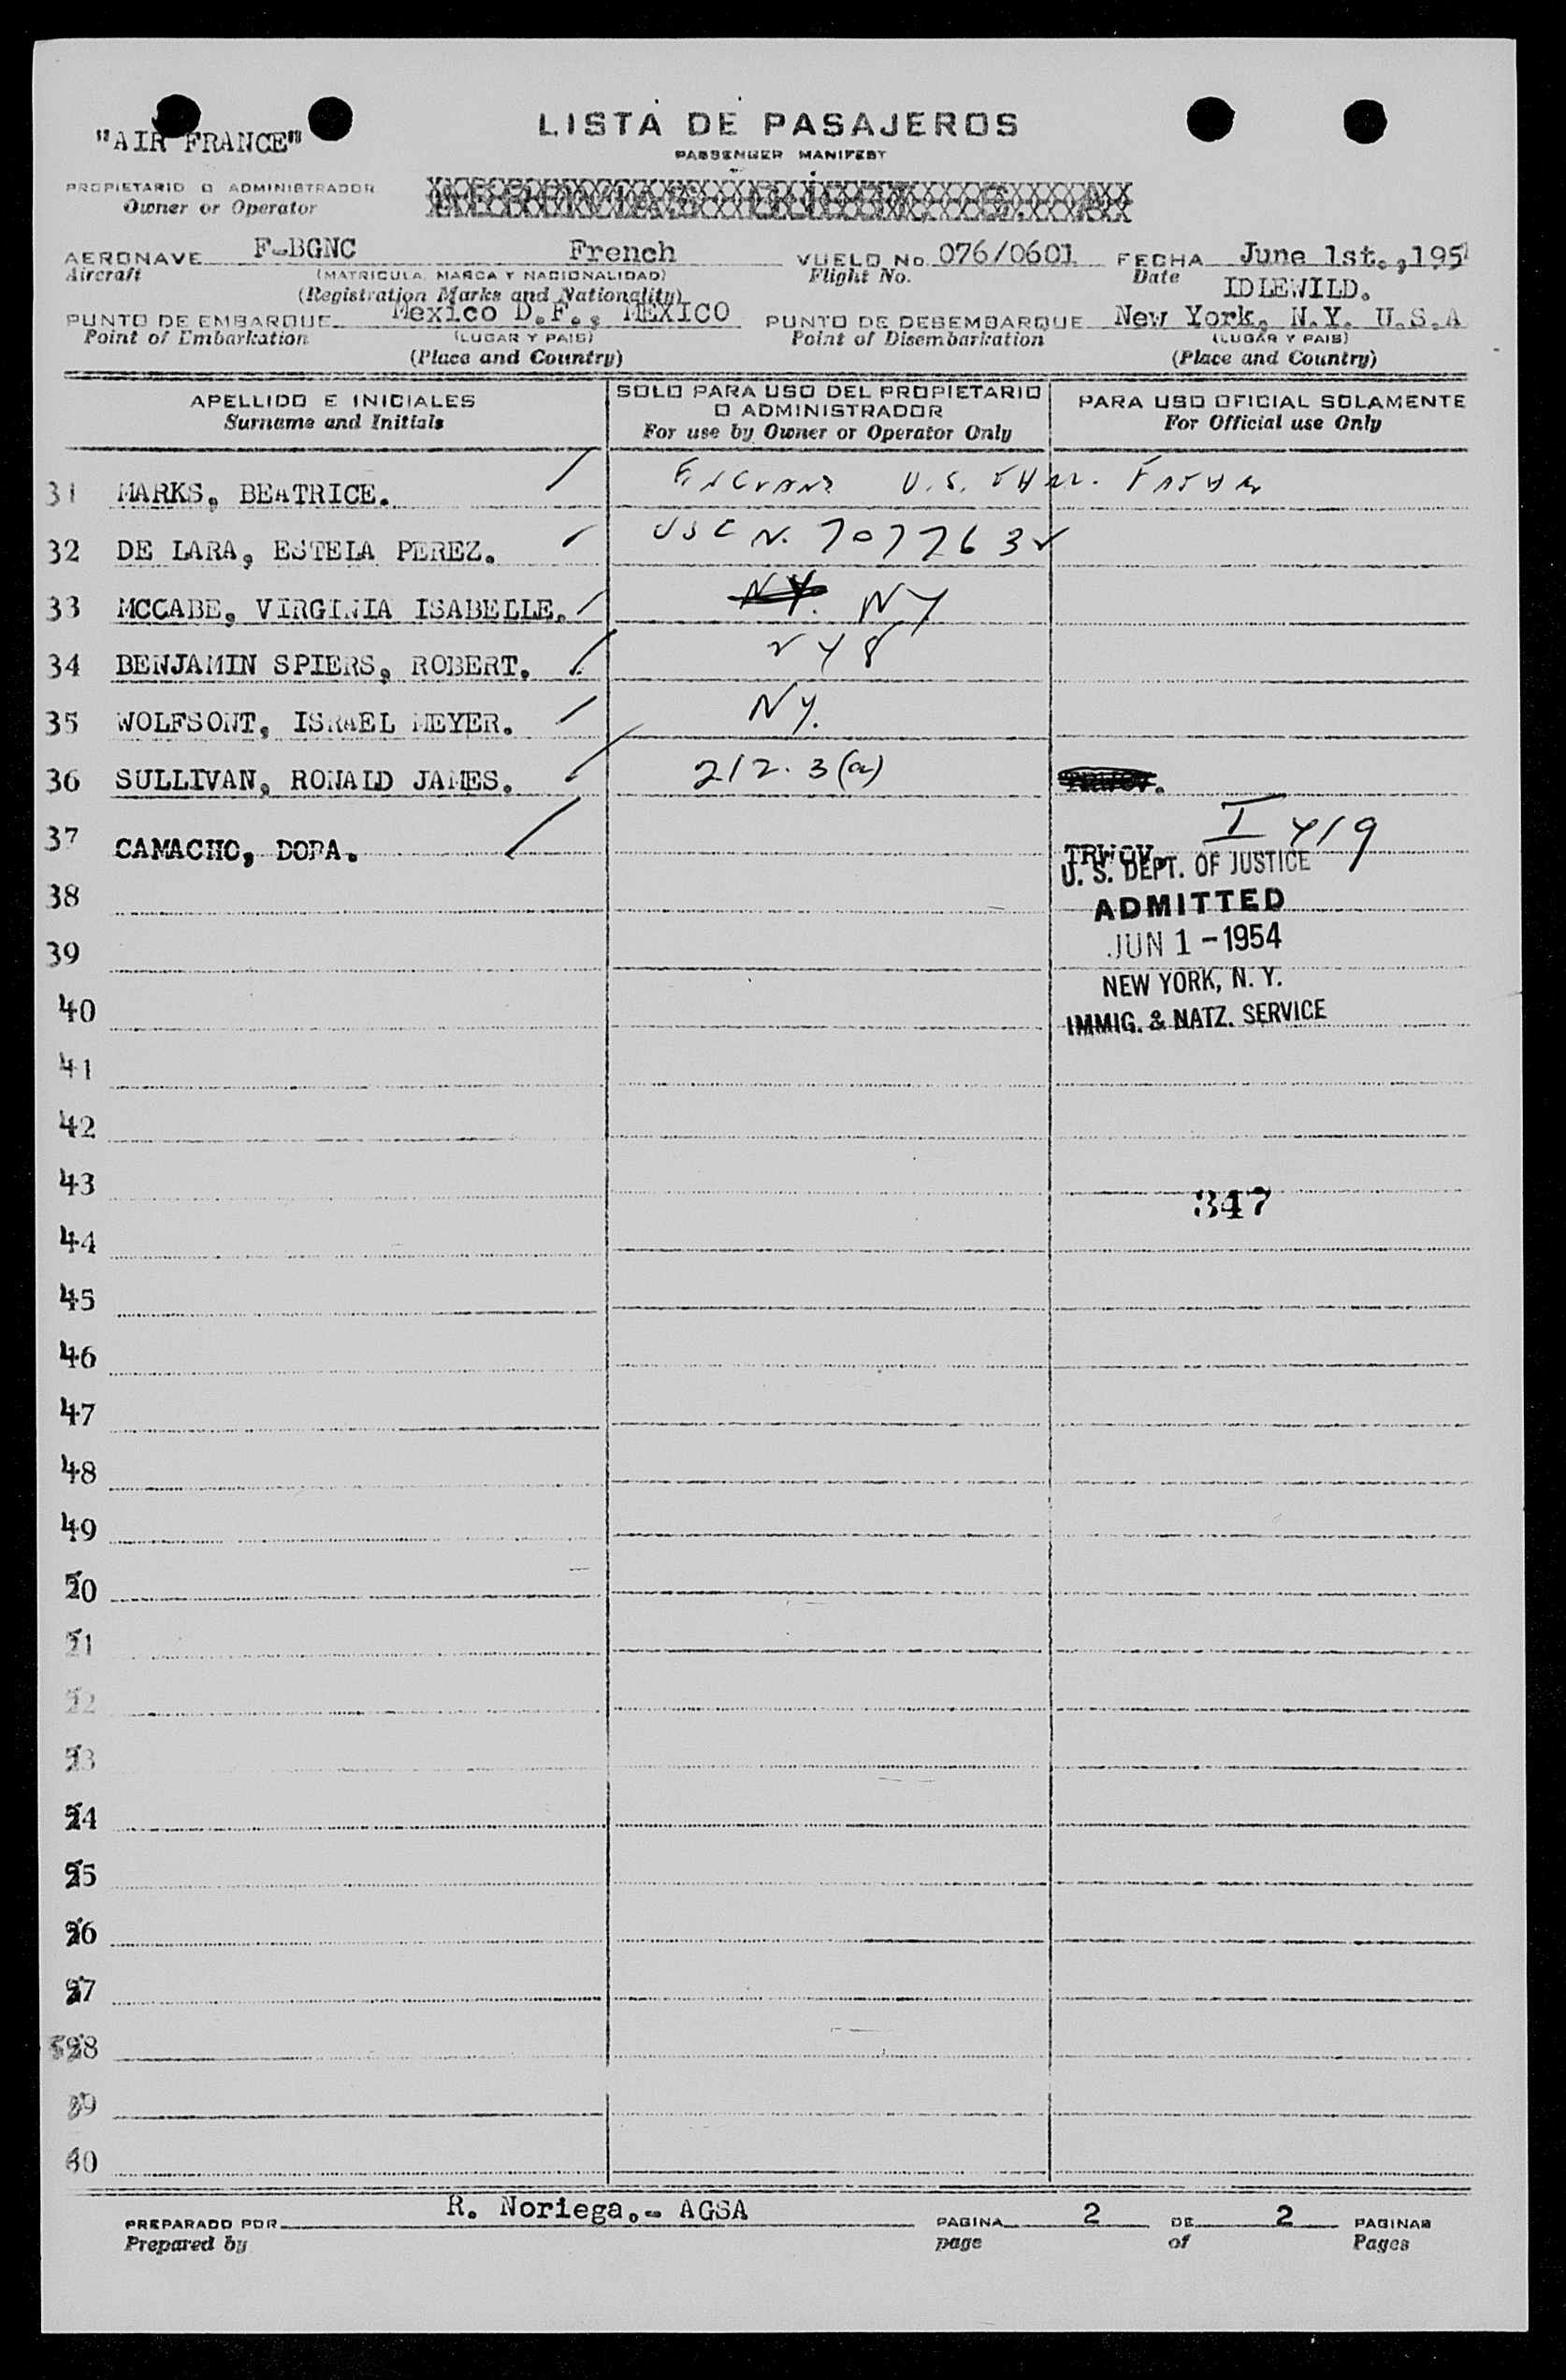 LISTA DE PASAJEROS
PASSENGER MANIFEST
"AIR FRANCE"
PROPIETARIO O ADMINISTRADOR
Owner or Operator
AERONAVE F-BGNC French VUELO No. 076/0601 FECHA June 1st.,195
Aircraft (MATRICULA, MARCA Y NACIONALIDAD) Flight No. Date
(Registration Marks and Nationality) IDLEWILD.
PUNTO DE EMBARQUE Mexico D.F., MEXICO PUNTO DE DESEMBARQUE New York, N.Y. U.S.A
Point of Embarkation (LUGAR Y PAIS) Point of Disembarkation (LUGAR Y PAIS)
(Place and Country) (Place and Country)
APELLIDO E INICIALES SOLO PARA USO DEL PROPIETARIO O ADMINISTRADOR PARA USO OFICIAL SOLAMENTE
Surname and Initials For use by Owner or Operator Only For Official use Only
31 MARKS, BEATRICE. England U.S.
32 DE LARA, ESTELA PEREZ. USC N. 707763
33 MCCABE, VIRGINIA ISABELLE. NY. NY
34 BENJAMIN SPIERS, ROBERT.
35 WOLFSONT, ISRAEL MEYER. NY.
36 SULLIVAN, RONALD JAMES. 212.3(a)
37 CAMACHO, DORA. TRWOV. I 419
U. S. DEPT. OF JUSTICE
38 ADMITTED
39 JUN 1 - 1954
NEW YORK, N. Y.
40 IMMIG. & NATZ. SERVICE
41
42
43 347
44
45
46
47
48
49
50
51
52
53
54
55
56
57
58
59
60
PREPARADO POR R. Noriega.- AGSA PAGINA 2 DE 2 PAGINAS
Prepared by page of Pages